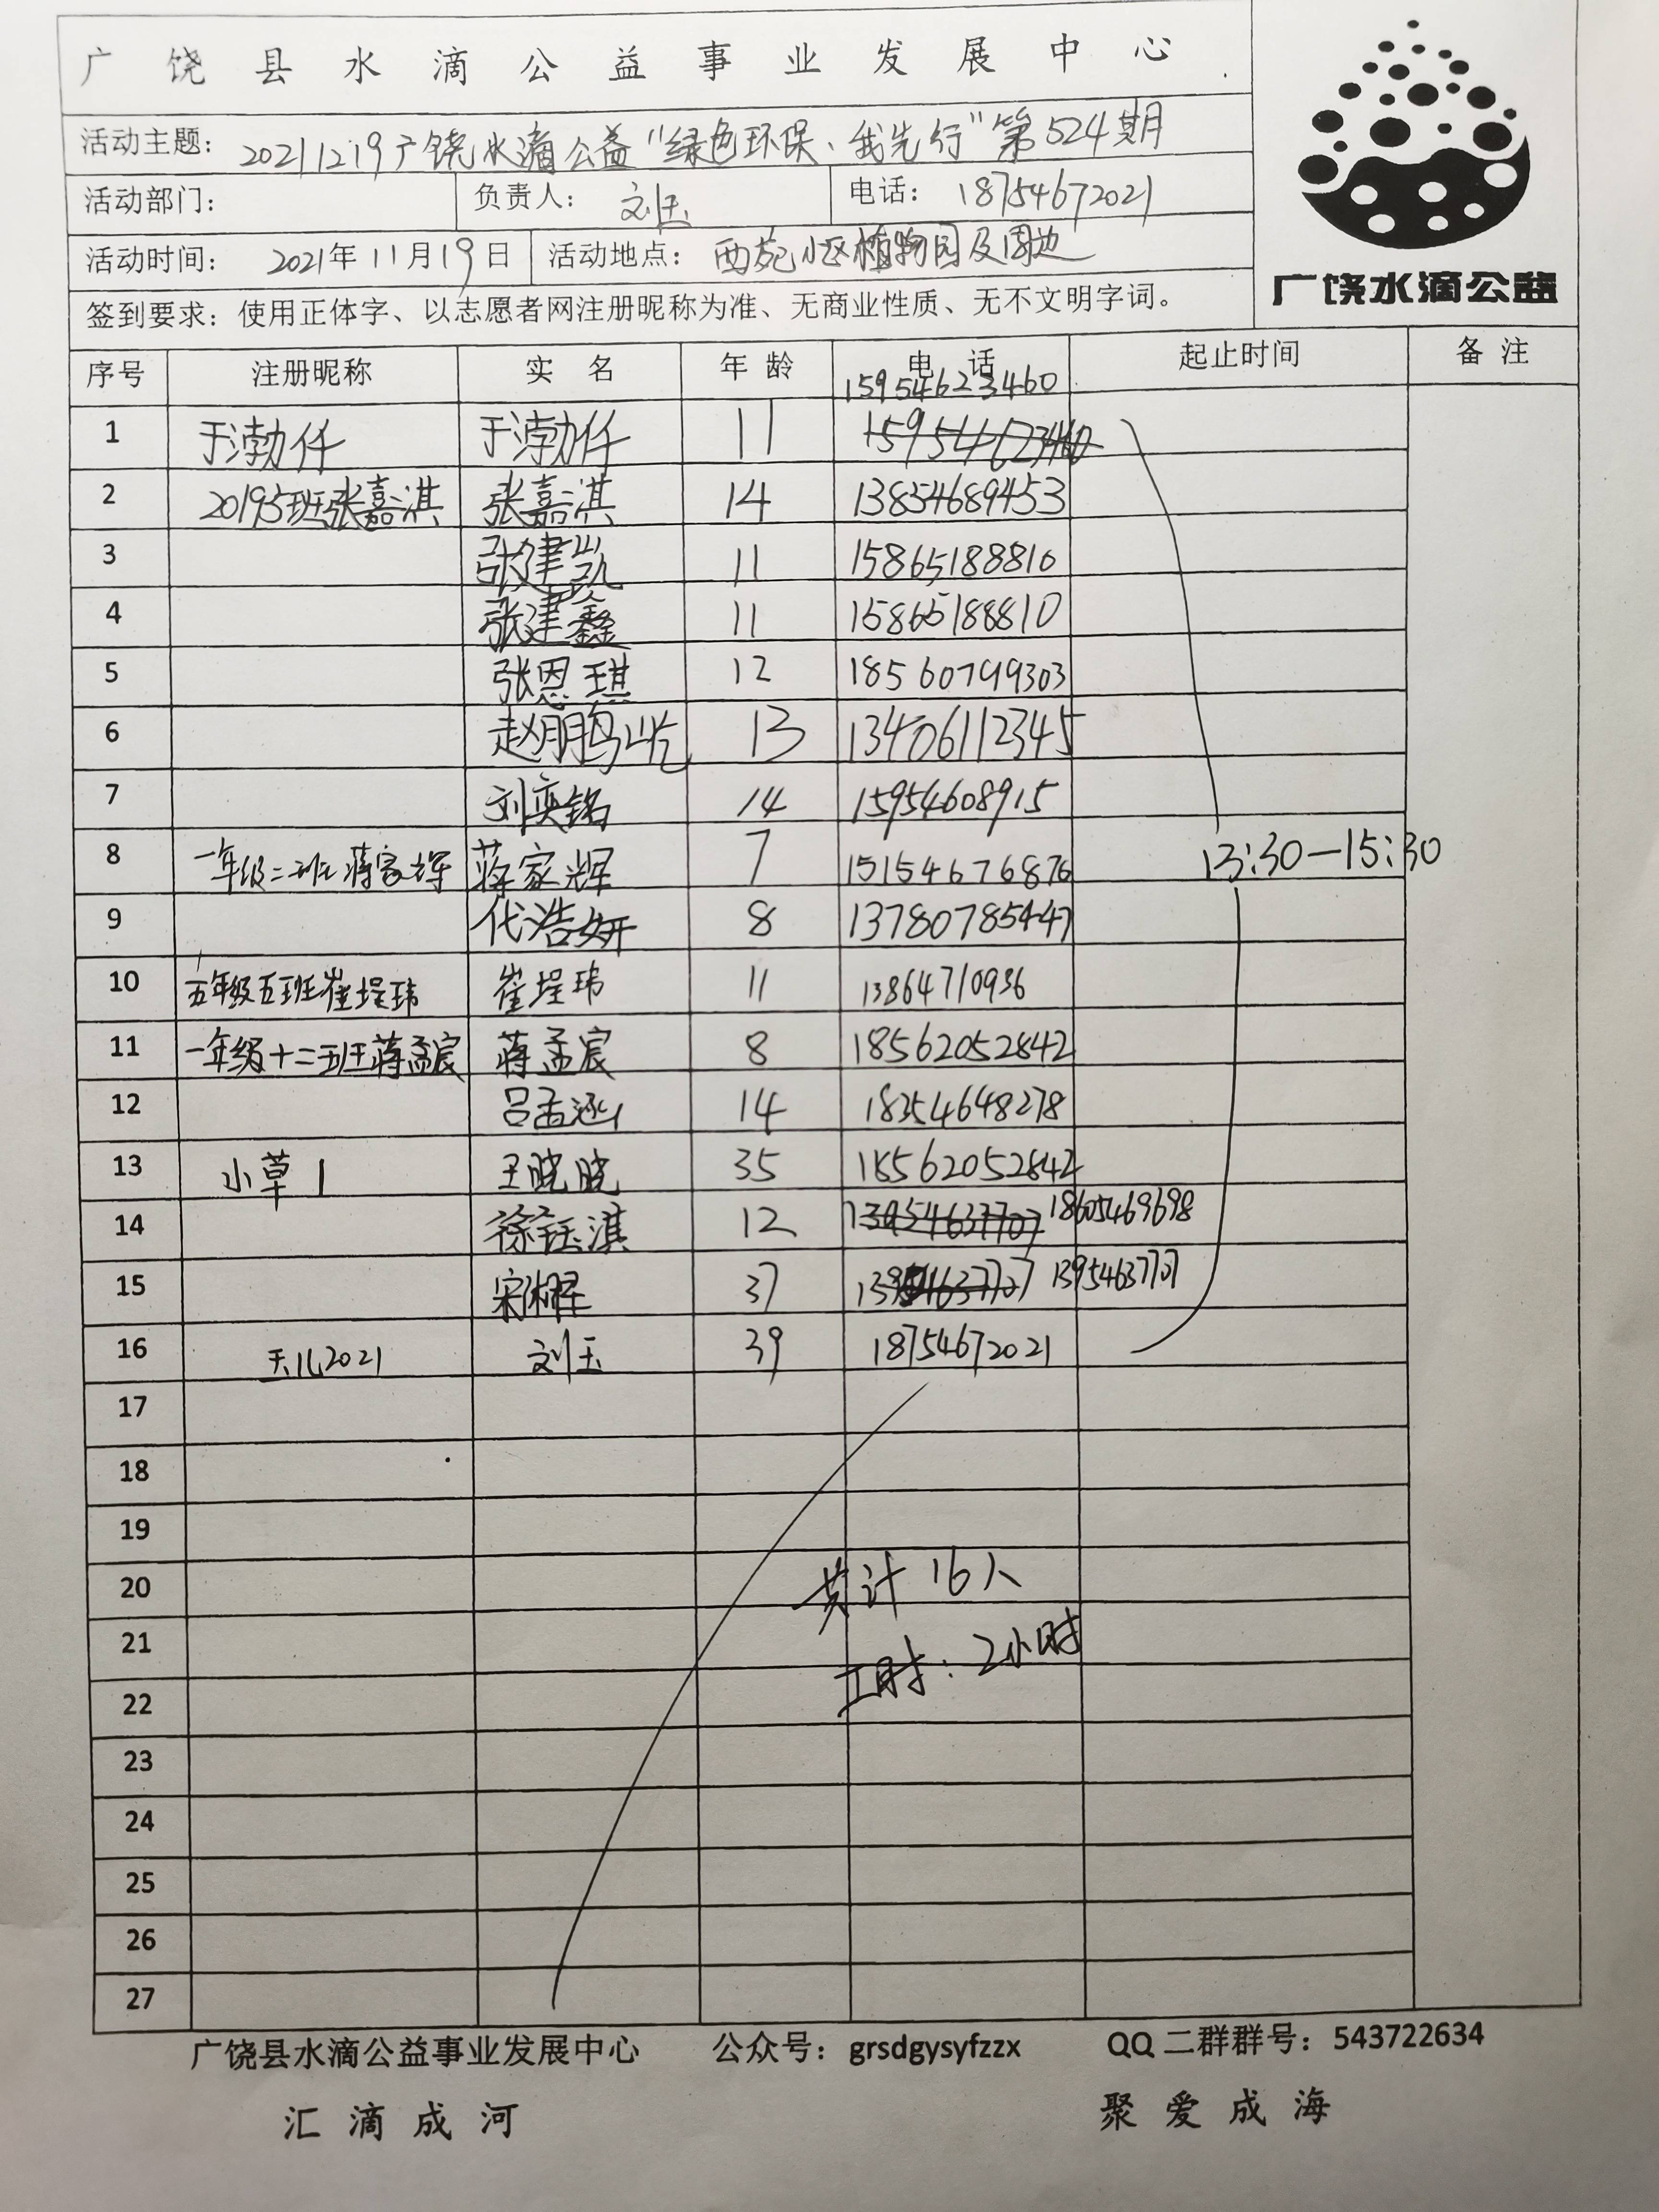 广饶县水滴公益事业发展中心
活动主题：20211219广饶水滴公益“绿色环保、我先行”第524期
活动部门： 负责人：刘玉 电话：18754672021
活动时间：2021年11月19日 活动地点：西苑小区植物园及周边
签到要求：使用正体字、以志愿者网注册昵称为准、无商业性质、无不文明字词。
广饶水滴公益
序号 注册昵称 实名 年龄 电话 起止时间 备注
15954623460
1 于渤仟 于渤仟 11 15954623460
2 20195班张嘉淇 张嘉淇 14 13854689453
3 张建凯 11 15865188810
4 张建鑫 11 15865188810
5 张恩琪 12 18560799303
6 赵鹏屹 13 13406112345
7 刘奕铭 14 15954608915
8 一年级二班蒋家辉 蒋家辉 7 15154676876 13:30—15:30
9 代浩妍 8 13780785447
10 五年级五班崔埕玮 崔埕玮 11 13864710936
11 一年级十二班蒋孟宸 蒋孟宸 8 18562052842
12 吕孟涵 14 18354648278
13 小草1 王晓晓 35 18562052842
14 徐钰淇 12 13954637707 18605469698
15 宋 37 13954637707 13954637707
16 2021 刘玉 39 18754672021
17
18
19
20 共计16人
21 工时：2小时
22
23
24
25
26
27
广饶县水滴公益事业发展中心 公众号：grsdgysyfzzx QQ二群群号：543722634
汇滴成河 聚爱成海